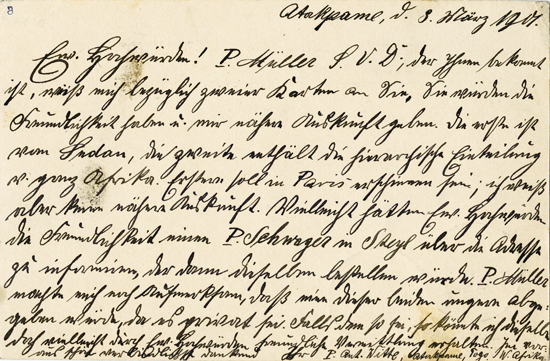 8
Atakpame, d. 8. März 1901.
Ew. Hochwürden! P. Müller S. V. D., der Ihnen bekannt
ist, weiß mich bezüglich zweier Karten an Sie, Sie würden die
Freundlichkeit haben u. mir nähere Auskunft geben. Die erste ist
vom Sudan, die zweite enthält die hierarchische Einteilung
v. ganz Afrika. Erstere soll in Paris erschienen sein, ich weiß
aber keine nähere Auskunft. Vielleicht hätten Ew. Hochwürden
die Freundlichkeit einen P. Schwager in Steyl über die Adresse
zu informieren, der dann dieselben bestellen würde. P. Müller
machte mich noch aufmerksam, daß eine dieser beiden ungern abge-
geben würde, da es privat sei. Falls dem so sei, so könnte ich dieselbe
doch vielleicht durch Ew. Hochwürden Vermittlung erhalten. Im vor-
aus dankend Ihr P. Ant. Witte, Atakpame, Togo W. Afrika